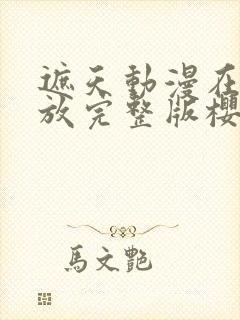 遮天動漫在
放完整版櫻
馬文艷